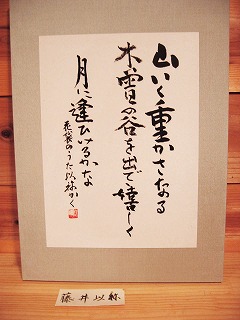 山いく重かさなる
木曽の谷を出で嬉しく
月に逢ひいるかな
花袋のうた以祢かく
藤井以祢